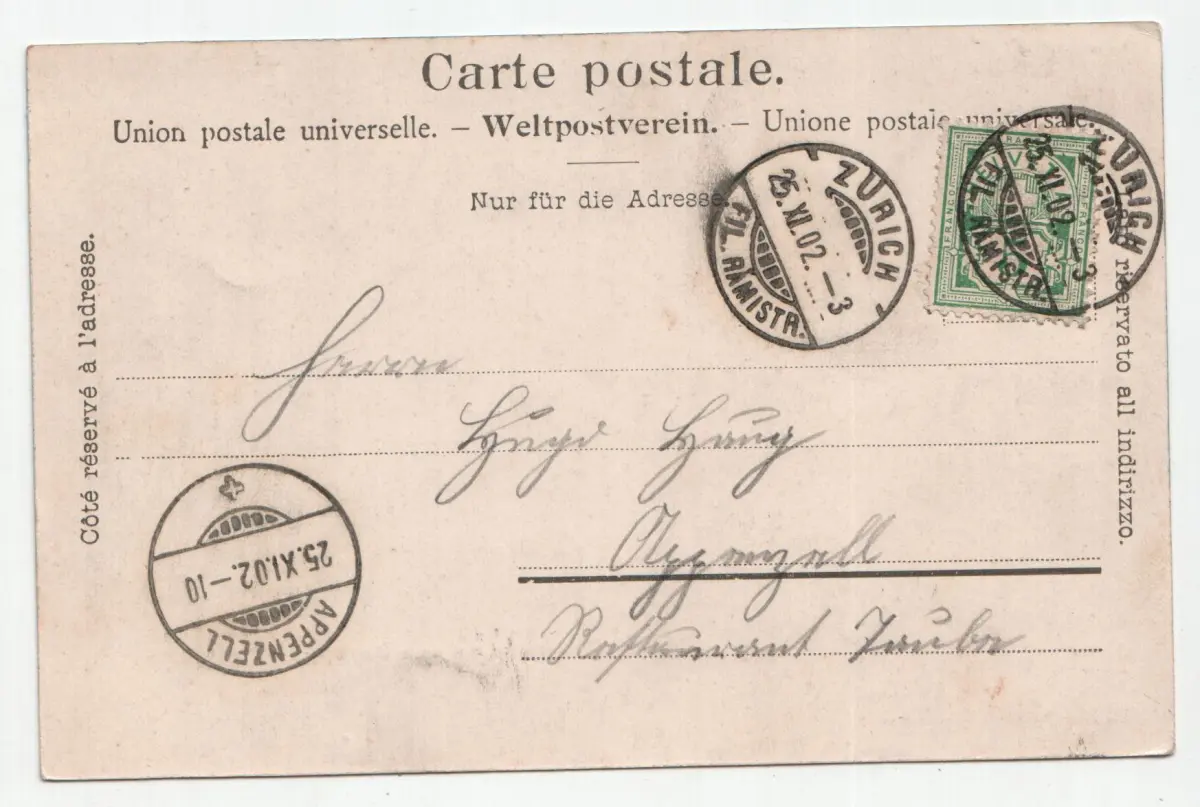 Carte postale.
Union postale universelle. – Weltpostverein. – Unione postale universale.
Nur für die Adresse.
Côté réservé à l'adresse.
riservato all indirizzo.
ZÜRICH
25.XI.02.–3
FIL. RÄMISTR.
ZÜRICH
25.XI.02.–3
FIL. RÄMISTR.
FRANCO
FRANCO
Herrn
Hugo Haug
Appenzell
Restaurant Taube
APPENZELL
25.XI.02.–10